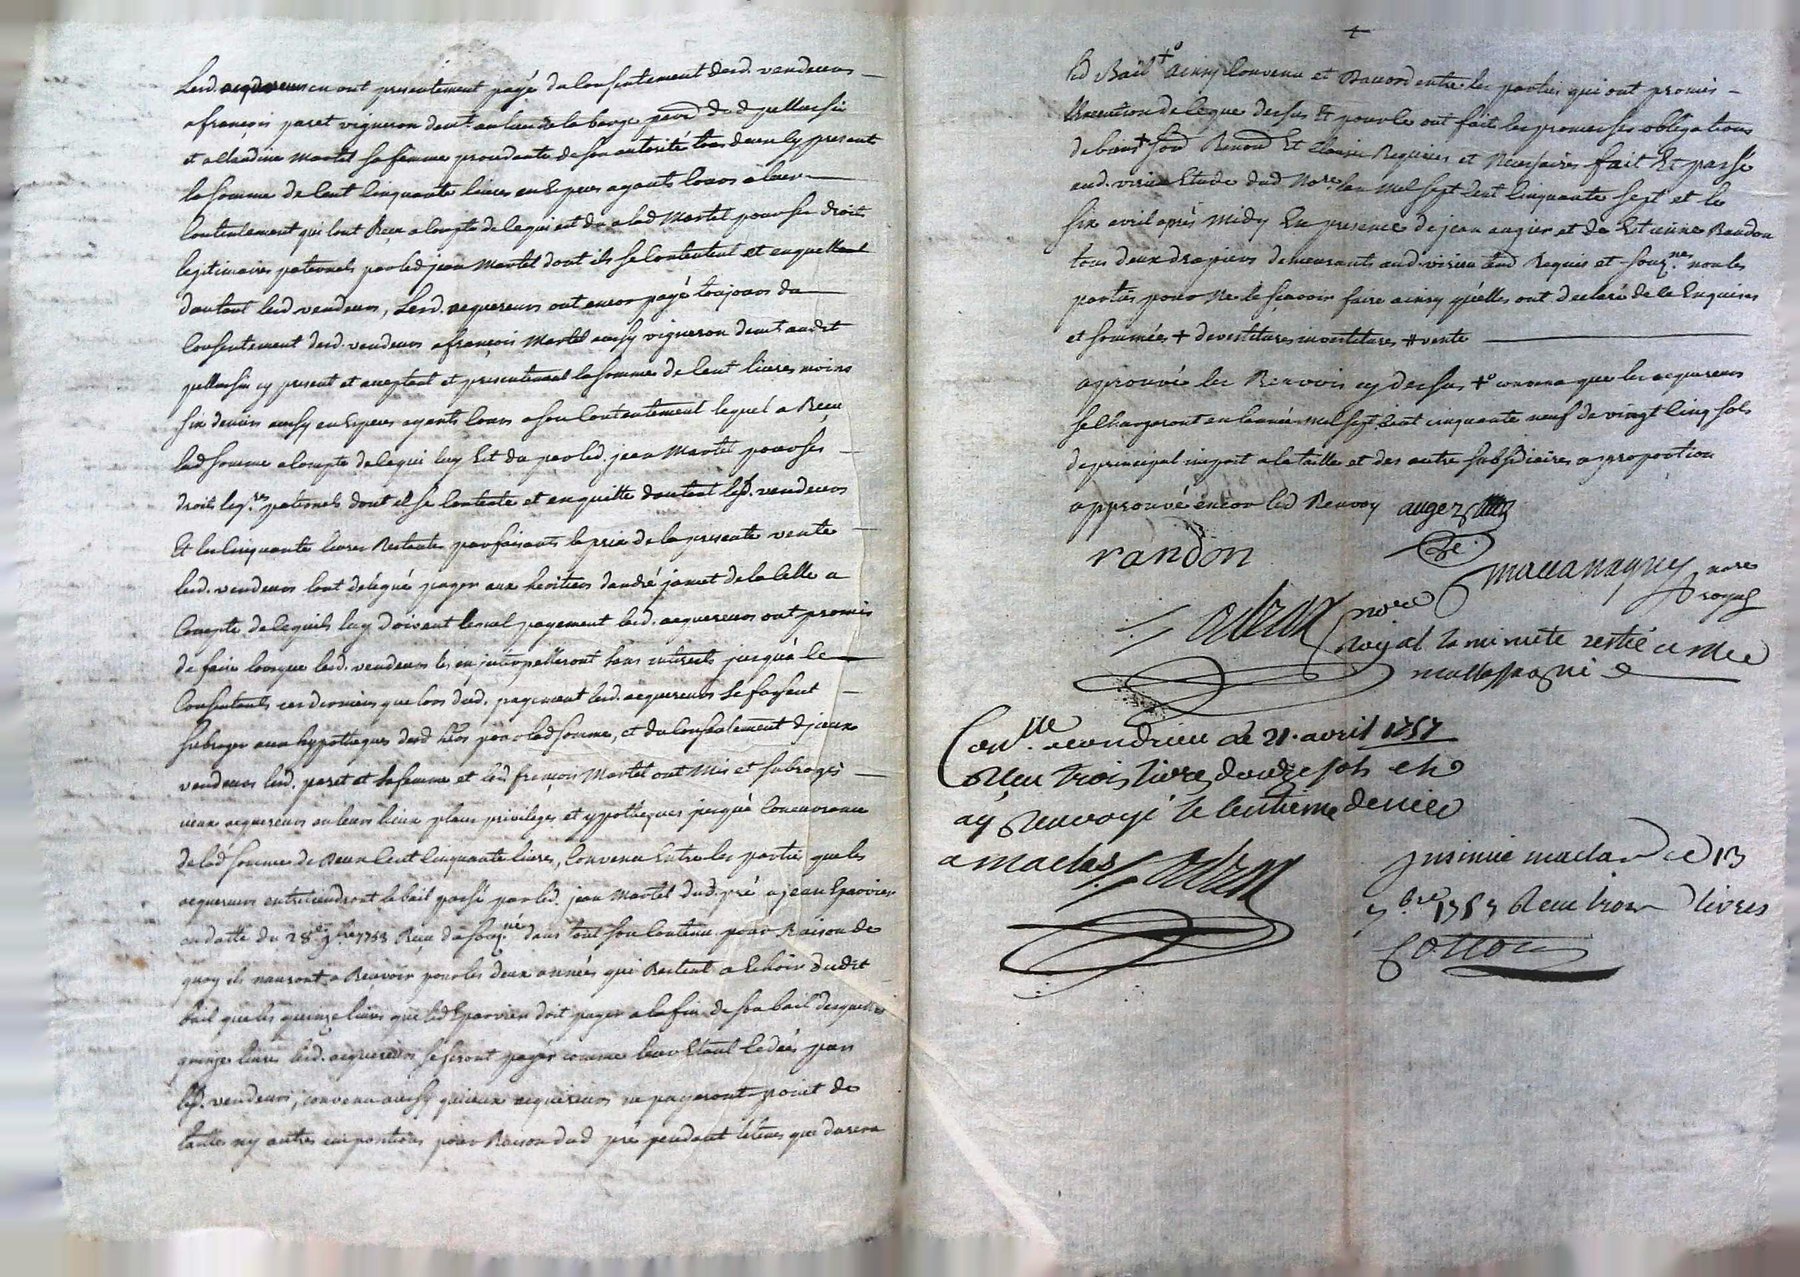 Lesd. acquereurs en ont presentement payé du consentement desd. vendeurs
a françois paret vigneron demt. au lieu de la barge psse de de pellussin
et a claudine Martel sa femme procedante de son autorité tous deux cy present
la somme de cent cinquante livres en Especes ayants cours a leur
Contentement qui l'ont Reçu a compte de ce qui est du a lad Martel pour ses droits
legitimaires paternels par led jean Martel dont ils se contentent et en quittent
d'autant lesd vendeurs, Lesd. acquereurs ont encor payé toujours du
Consentement desd. vendeurs a françois Martel aussy vigneron demt. audit
pellussin cy present et acceptant et presentement la somme de cent livres moins
six deniers aussy en Especes ayants cours a son Contentement lequel a Reçu
lad somme a compte de ce qui luy Est du par led. jean Martel pour ses
droits legres. paternels dont il se contente et en quitte d'autant lesd. vendeurs
Et les cinquante livres Restante parfaisants le prix de la presente vente
lesd. vendeurs l'ont delegué payer aux heritiers d'andré jamet de la Celle a
Compte de ce qu'ils luy doivent lequel payement lesd. acquereurs ont promis
de faire lorsque lesd. vendeurs les en interpelleront sans interets jusqu'a ce
Consentants ces derniers que lors dud. payement lesd. acquereurs se fassent
subroger aux hypotheques desd hers pour lad somme, et du consentement d'jceux
vendeurs led. paret et sa femme et led. françois Martel ont Mis et subrogés
iceux acquereurs en leurs lieux places privileges et ypotheques jusqu'a Concurrance
de lad somme de Deux Cent Cinquante livres, Convenu Entre les parties que les
acquereurs entretiendront le bail passé par led. jean Martel dud. pré a jean Eparvier
en datte du 28e 9bre 1753 Reçu du souqné dans tout son Contenu pour Raison de
quoy ils n'auront a Recevoir pour les deux années qui Restent a Echoir dudit
bail que les quinze livres que led Eparvier doit payer a la fin de son bail desquelles
quinze livres lesd. acquereurs se feront payer comme leur Etant Cedées par
lesd. vendeurs, convenu aussy qu'iceux acquereurs ne payeront point de
tailles ny autres impositions pour Raison dud pré pendant le tems que durera
led Bail +o ainsy Convenu et D'accord entre les parties qui ont promis
l'execution de ce que dessus Et pour ce ont fait les promesses obligations
de biens + soum Renond Et Clauses Requises et Necessaires fait Et passé
aud. virieu Etude dud Nore. l'an Mil sept Cent Cinquante sept et le
six avril après Midy En presence de jean augier et de Etienne Randon
tous deux drapiers demeurants aud. virieu tem Requis et souqnes non les
parties pour Ne le sçavoir faire ainsy qu'elles ont declaré de ce Enquises
et sommées + devestitures investitures # vente
approuvé les Renvois cy dessus +o convenu que les acquereurs
se chargeront en l'année mil sept cent cinquante neuf de vingt cinq sols
de principal impot a la taille et des autre subsidiaires a proportion
approuvé encor led Renvoy augez
randon
nore
royal
nore
Royal la minute restée a Me
Conlle a condrieu le 21. avril 1757
Reçu trois livres douze sols et
ay renvoyé le centieme denier
a maclas
jnsinué maclas ce 13
7bre 1757 Reçu trois livres
Cotton